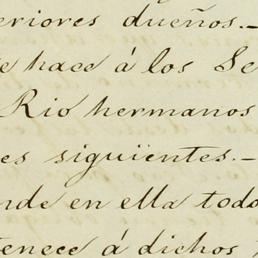 eriores dueños.—
e hace á los Se
Rio hermanos
es siguïentes.—
nde en ella todo
tenece á dichos